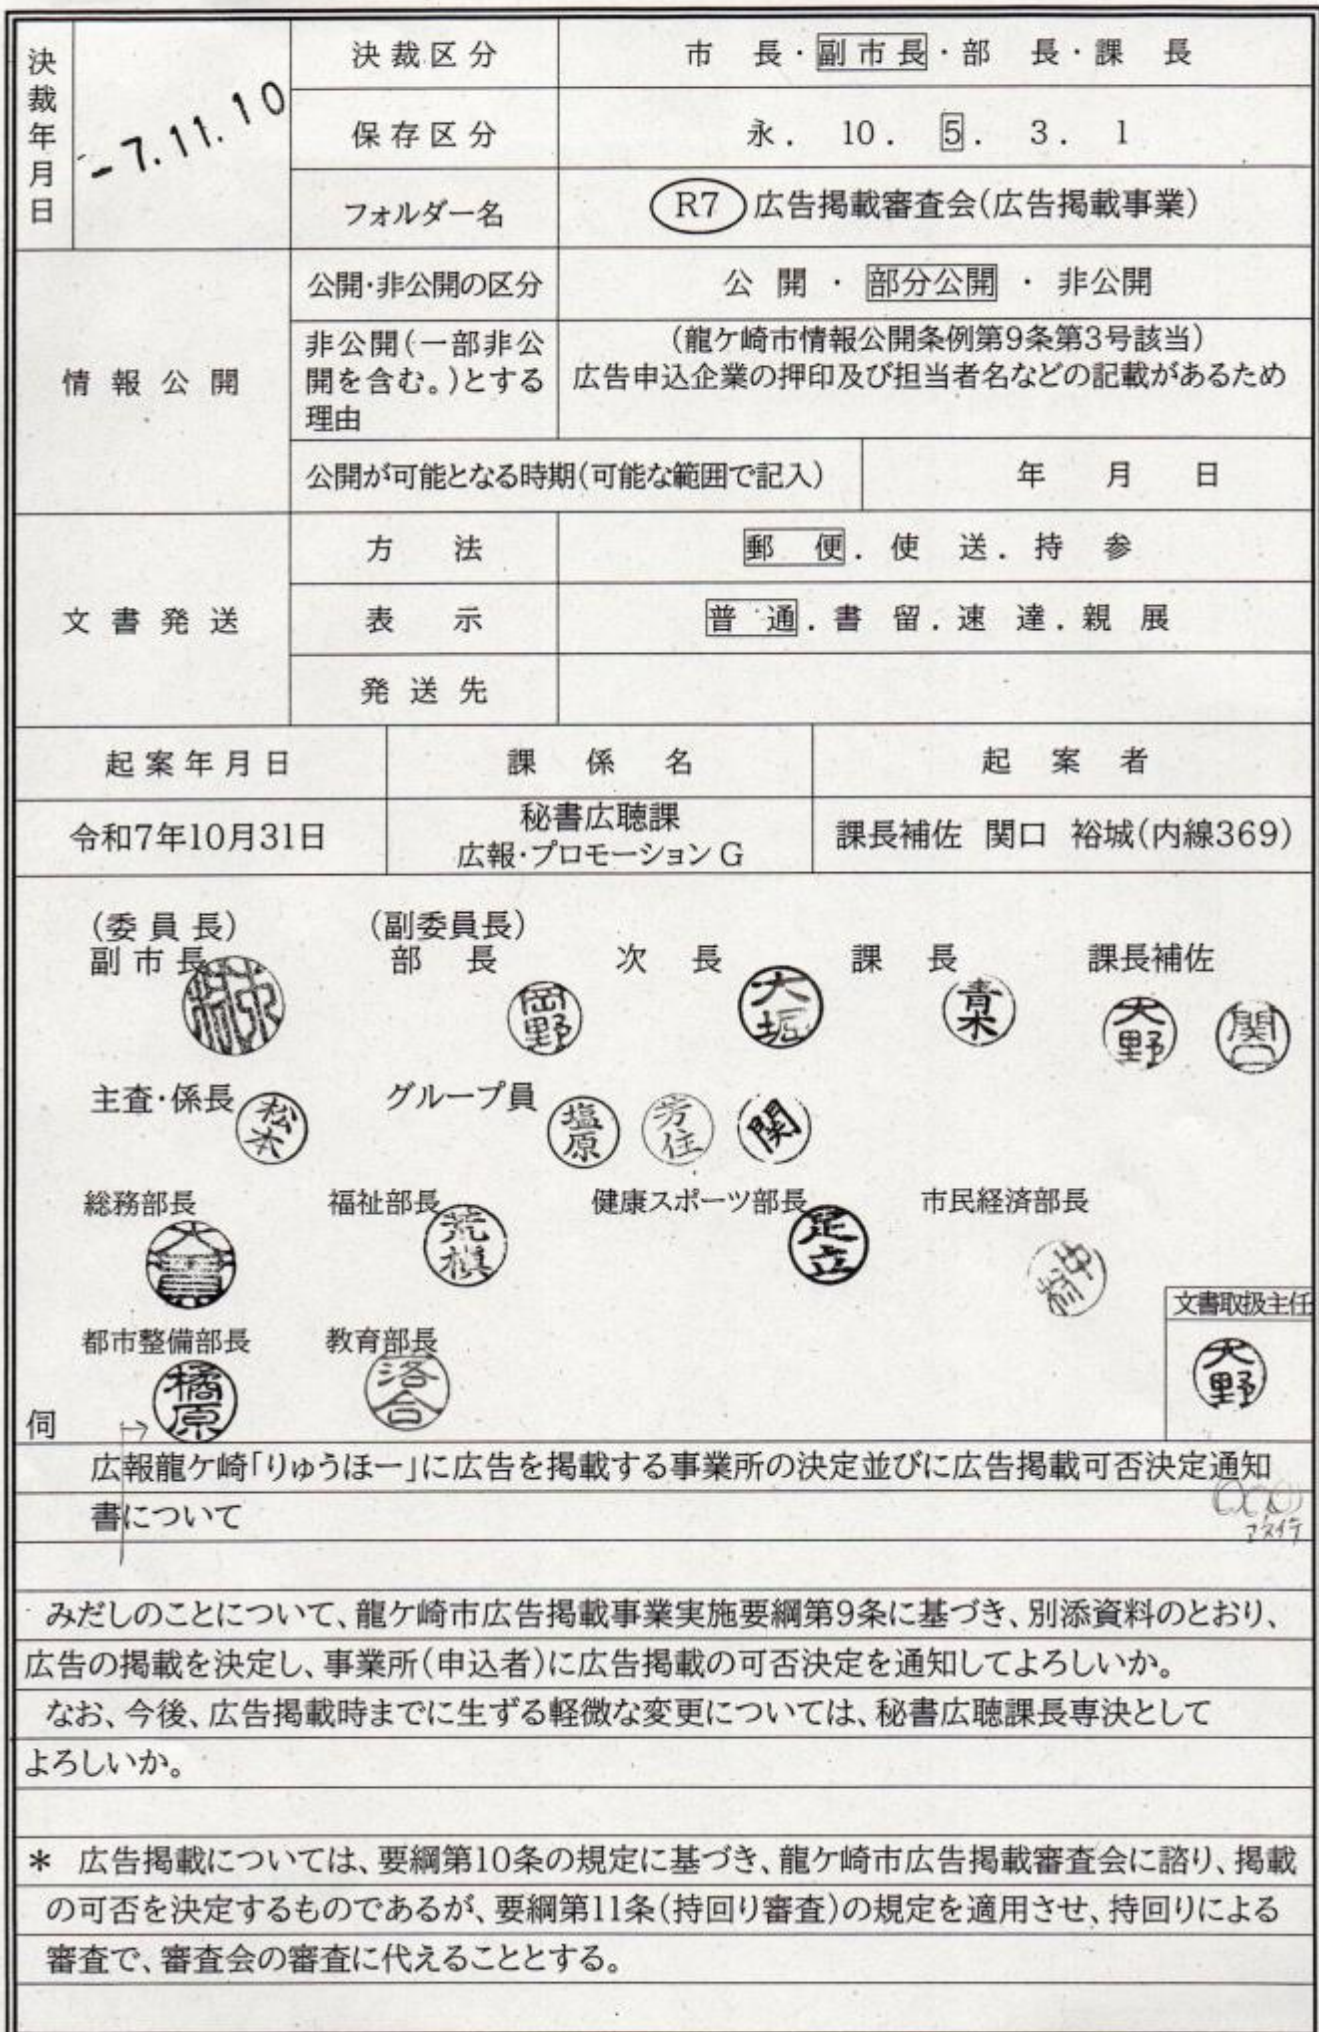 決裁年月日
-7.11.10
決裁区分
市　長・副市長・部　長・課　長
保存区分
永. 10. 5. 3. 1
フォルダー名
R7 広告掲載審査会(広告掲載事業)
情報公開
公開・非公開の区分
公 開 ・ 部分公開 ・ 非公開
非公開(一部非公
開を含む。)とする
理由
(龍ケ崎市情報公開条例第9条第3号該当)
広告申込企業の押印及び担当者名などの記載があるため
公開が可能となる時期(可能な範囲で記入)
年　月　日
文書発送
方　法
郵　便. 使　送. 持　参
表　示
普　通. 書　留. 速　達. 親　展
発送先
起案年月日
課係名
起案者
令和7年10月31日
秘書広聴課
広報・プロモーションG
課長補佐 関口 裕城(内線369)
(委員長)
(副委員長)
副市長
部　長
次　長
課　長
課長補佐
岡野
大堀
青木
大野
関口
主査・係長
松本
グループ員
塩原
芳住
関
総務部長
福祉部長
健康スポーツ部長
市民経済部長
荒槇
足立
文書取扱主任
大野
都市整備部長
教育部長
橘原
落合
伺
広報龍ケ崎「りゅうほー」に広告を掲載する事業所の決定並びに広告掲載可否決定通知
書について
みだしのことについて、龍ケ崎市広告掲載事業実施要綱第9条に基づき、別添資料のとおり、
広告の掲載を決定し、事業所(申込者)に広告掲載の可否決定を通知してよろしいか。
なお、今後、広告掲載時までに生ずる軽微な変更については、秘書広聴課長専決として
よろしいか。
* 広告掲載については、要綱第10条の規定に基づき、龍ケ崎市広告掲載審査会に諮り、掲載
の可否を決定するものであるが、要綱第11条(持回り審査)の規定を適用させ、持回りによる
審査で、審査会の審査に代えることとする。